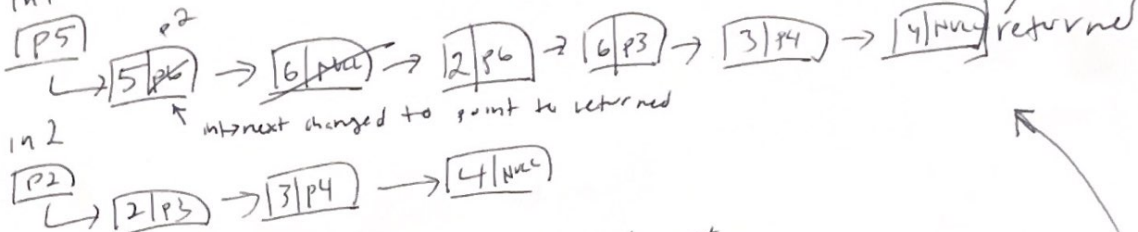 in1
P5
p2
5|p6 → 6|NULL → 2|p6 → 6|p3 → 3|p4 → 4|NULL returned
int→next changed to point to returned
in2
P2
2|p3 → 3|p4 → 4|NULL